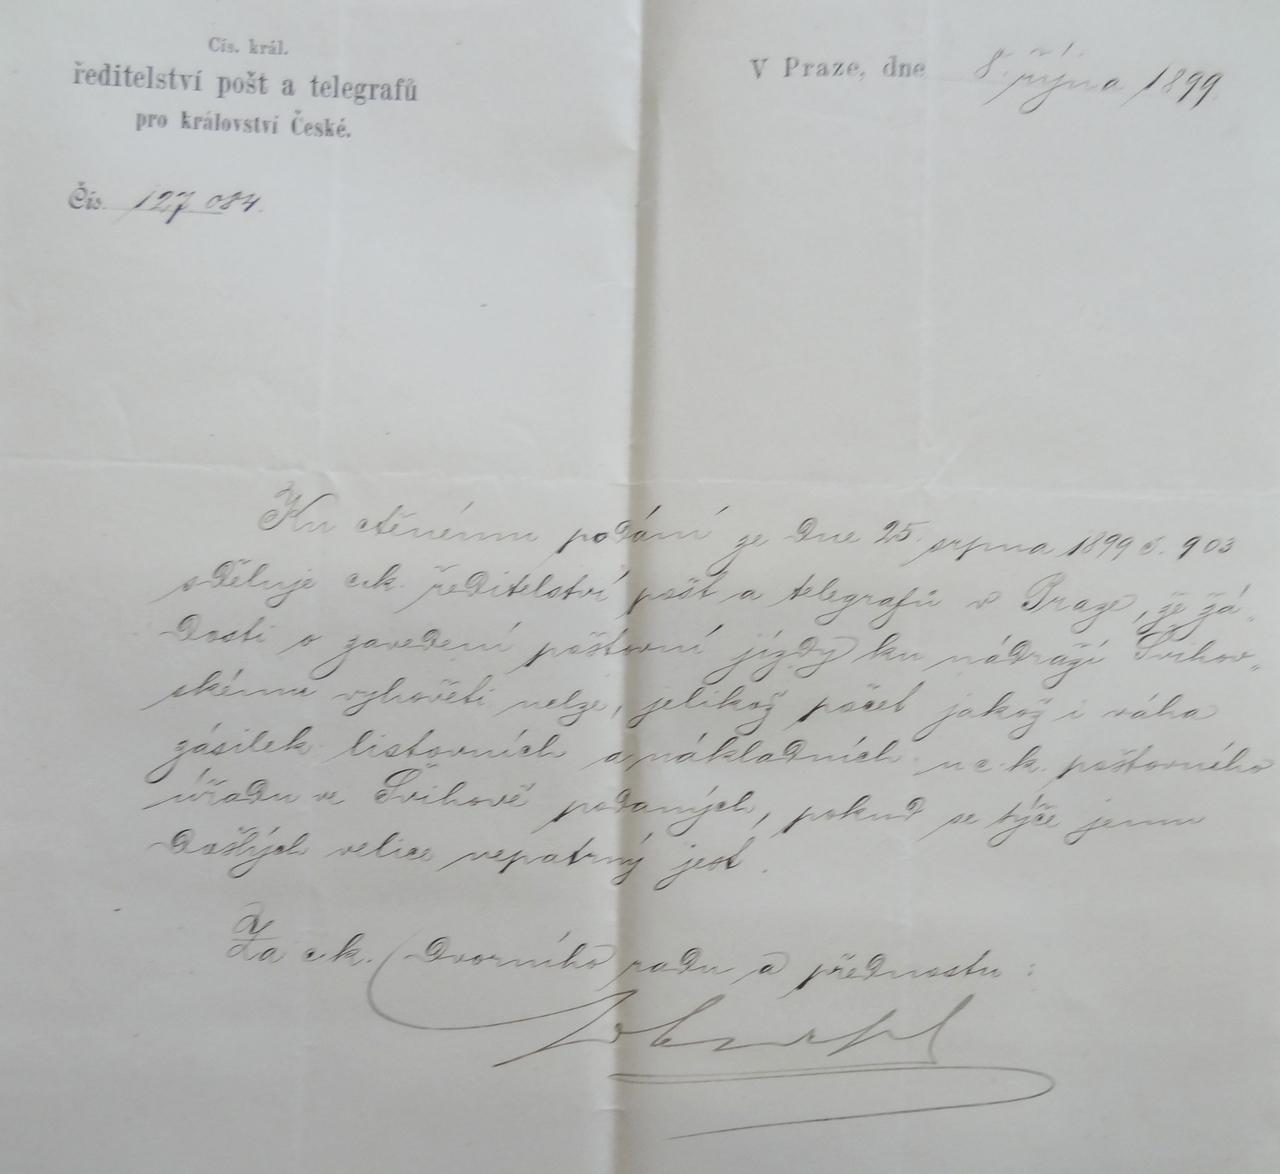 Cís. král.
ředitelství pošt a telegrafů
pro království České.
V Praze, dne 8. října 1899
Čís. 127 084.
Ku ctěnému podání ze dne 25. srpna 1899 č. 903
sděluje c.k. ředitelství pošt a telegrafů v Praze, že žá-
dosti o zavedení poštovní jízdy ku nádraží Švihov-
skému vyhověti nelze, jelikož počet jakož i váha
zásilek listovních a nákladních u c.k. poštovního
úřadu ve Švihově podaných, pokud se týče jemu
došlých velice nepatrný jest.
Za c.k. dvorního radu a přednostu: